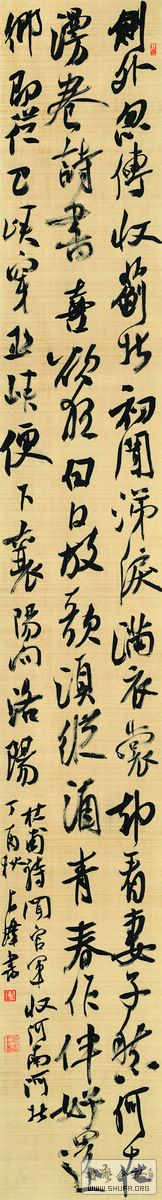 劍外忽傳收薊北初聞涕淚滿衣裳却看妻子愁何在
漫卷詩書喜欲狂白日放歌須縱酒青春作伴好還
鄉即從巴峽穿巫峽便下襄陽向洛陽
杜甫詩聞官軍收河南河北
丁酉秋 書
WWW.SHUFA.ORG